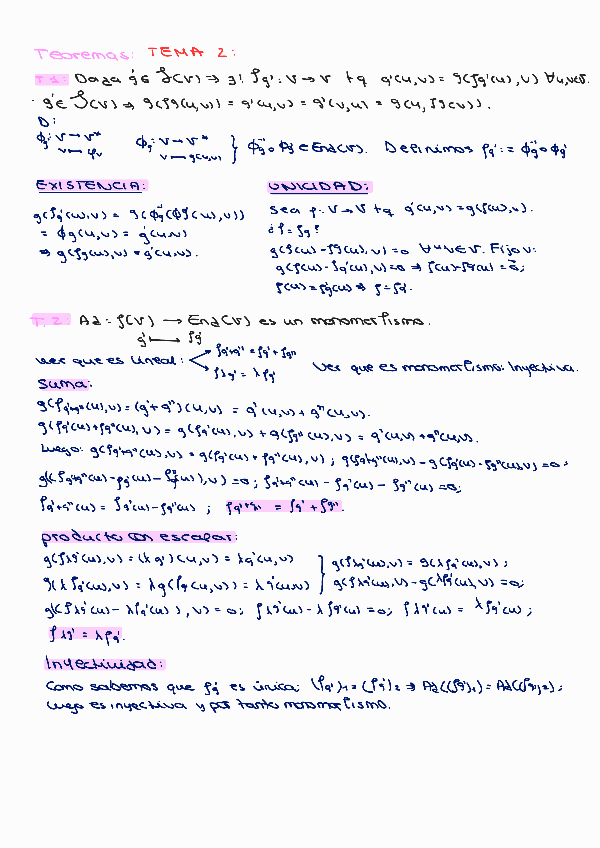 Teoremas: TEMA 2:
T.1: Dada g'∈ S(V) ⇒ ∃! ρg': V → V tq g'(u,v) = g(ρg'(u), v) ∀u,v∈V.
g'∈ S(V) ⇒ g(ρg'(u), v) = g'(u,v) = g'(v,u) = g(u, ρg'(v)).
D:
ϕg: V → V* ϕg': V → V* } ϕg⁻¹∘ϕg' ∈ End(V). Definimos ρg' := ϕg⁻¹∘ϕg'
EXISTENCIA:
g(ρg'(u),v) = g(ϕg⁻¹(ϕg'(u),v))
= ϕg'(u,v) = g'(u,v)
⇒ g(ρg'(u),v) = g'(u,v).
UNICIDAD:
Sea ρ: V → V tq g'(u,v) = g(ρ(u),v).
¿ρ = ρg'?
g(ρ(u) - ρg'(u),v) = 0 ∀u,v∈V. Fijo u:
g(ρ(u) - ρg'(u),v) = 0 ⇒ ρ(u) - ρg'(u) = 0⃗;
ρ(u) = ρg'(u) ⇒ ρ = ρg'.
T.2: Ad: S(V) → End(V) es un monomorfismo.
g' ↦ ρg'
Ver que es lineal: ρg'+g'' = ρg' + ρg''
ρλg' = λρg'
Ver que es monomorfismo: Inyectiva.
Suma:
g(ρg'+g''(u),v) = (g'+g'')(u,v) = g'(u,v) + g''(u,v).
g(ρg'(u)+ρg''(u),v) = g(ρg'(u),v) + g(ρg''(u),v) = g'(u,v) + g''(u,v).
Luego: g(ρg'+g''(u),v) = g(ρg'(u) + ρg''(u),v); g(ρg'+g''(u),v) - g(ρg'(u) - ρg''(u),v) = 0;
g(ρg'+g''(u) - ρg'(u) - ρg''(u),v) = 0; ρg'+g''(u) - ρg'(u) - ρg''(u) = 0;
ρg'+g''(u) = ρg'(u) - ρg''(u); ρg'+g'' = ρg' + ρg''.
producto con escalar:
g(ρλg'(u),v) = (λg')(u,v) = λg'(u,v)
g(λρg'(u),v) = λg(ρg'(u,v)) = λg'(u,v)
} g(ρλg'(u),v) = g(λρg'(u),v);
g(ρλg'(u),v) - g(λρg'(u),v) = 0;
g(ρλg'(u) - λρg'(u),v) = 0; ρλg'(u) - λρg'(u) = 0; ρλg'(u) = λρg'(u);
ρλg' = λρg'.
Inyectividad:
Como sabemos que ρg' es única; (ρg')1 = (ρg')2 ⇒ Ad((ρg')1) = Ad((ρg')2);
luego es inyectiva y por tanto monomorfismo.